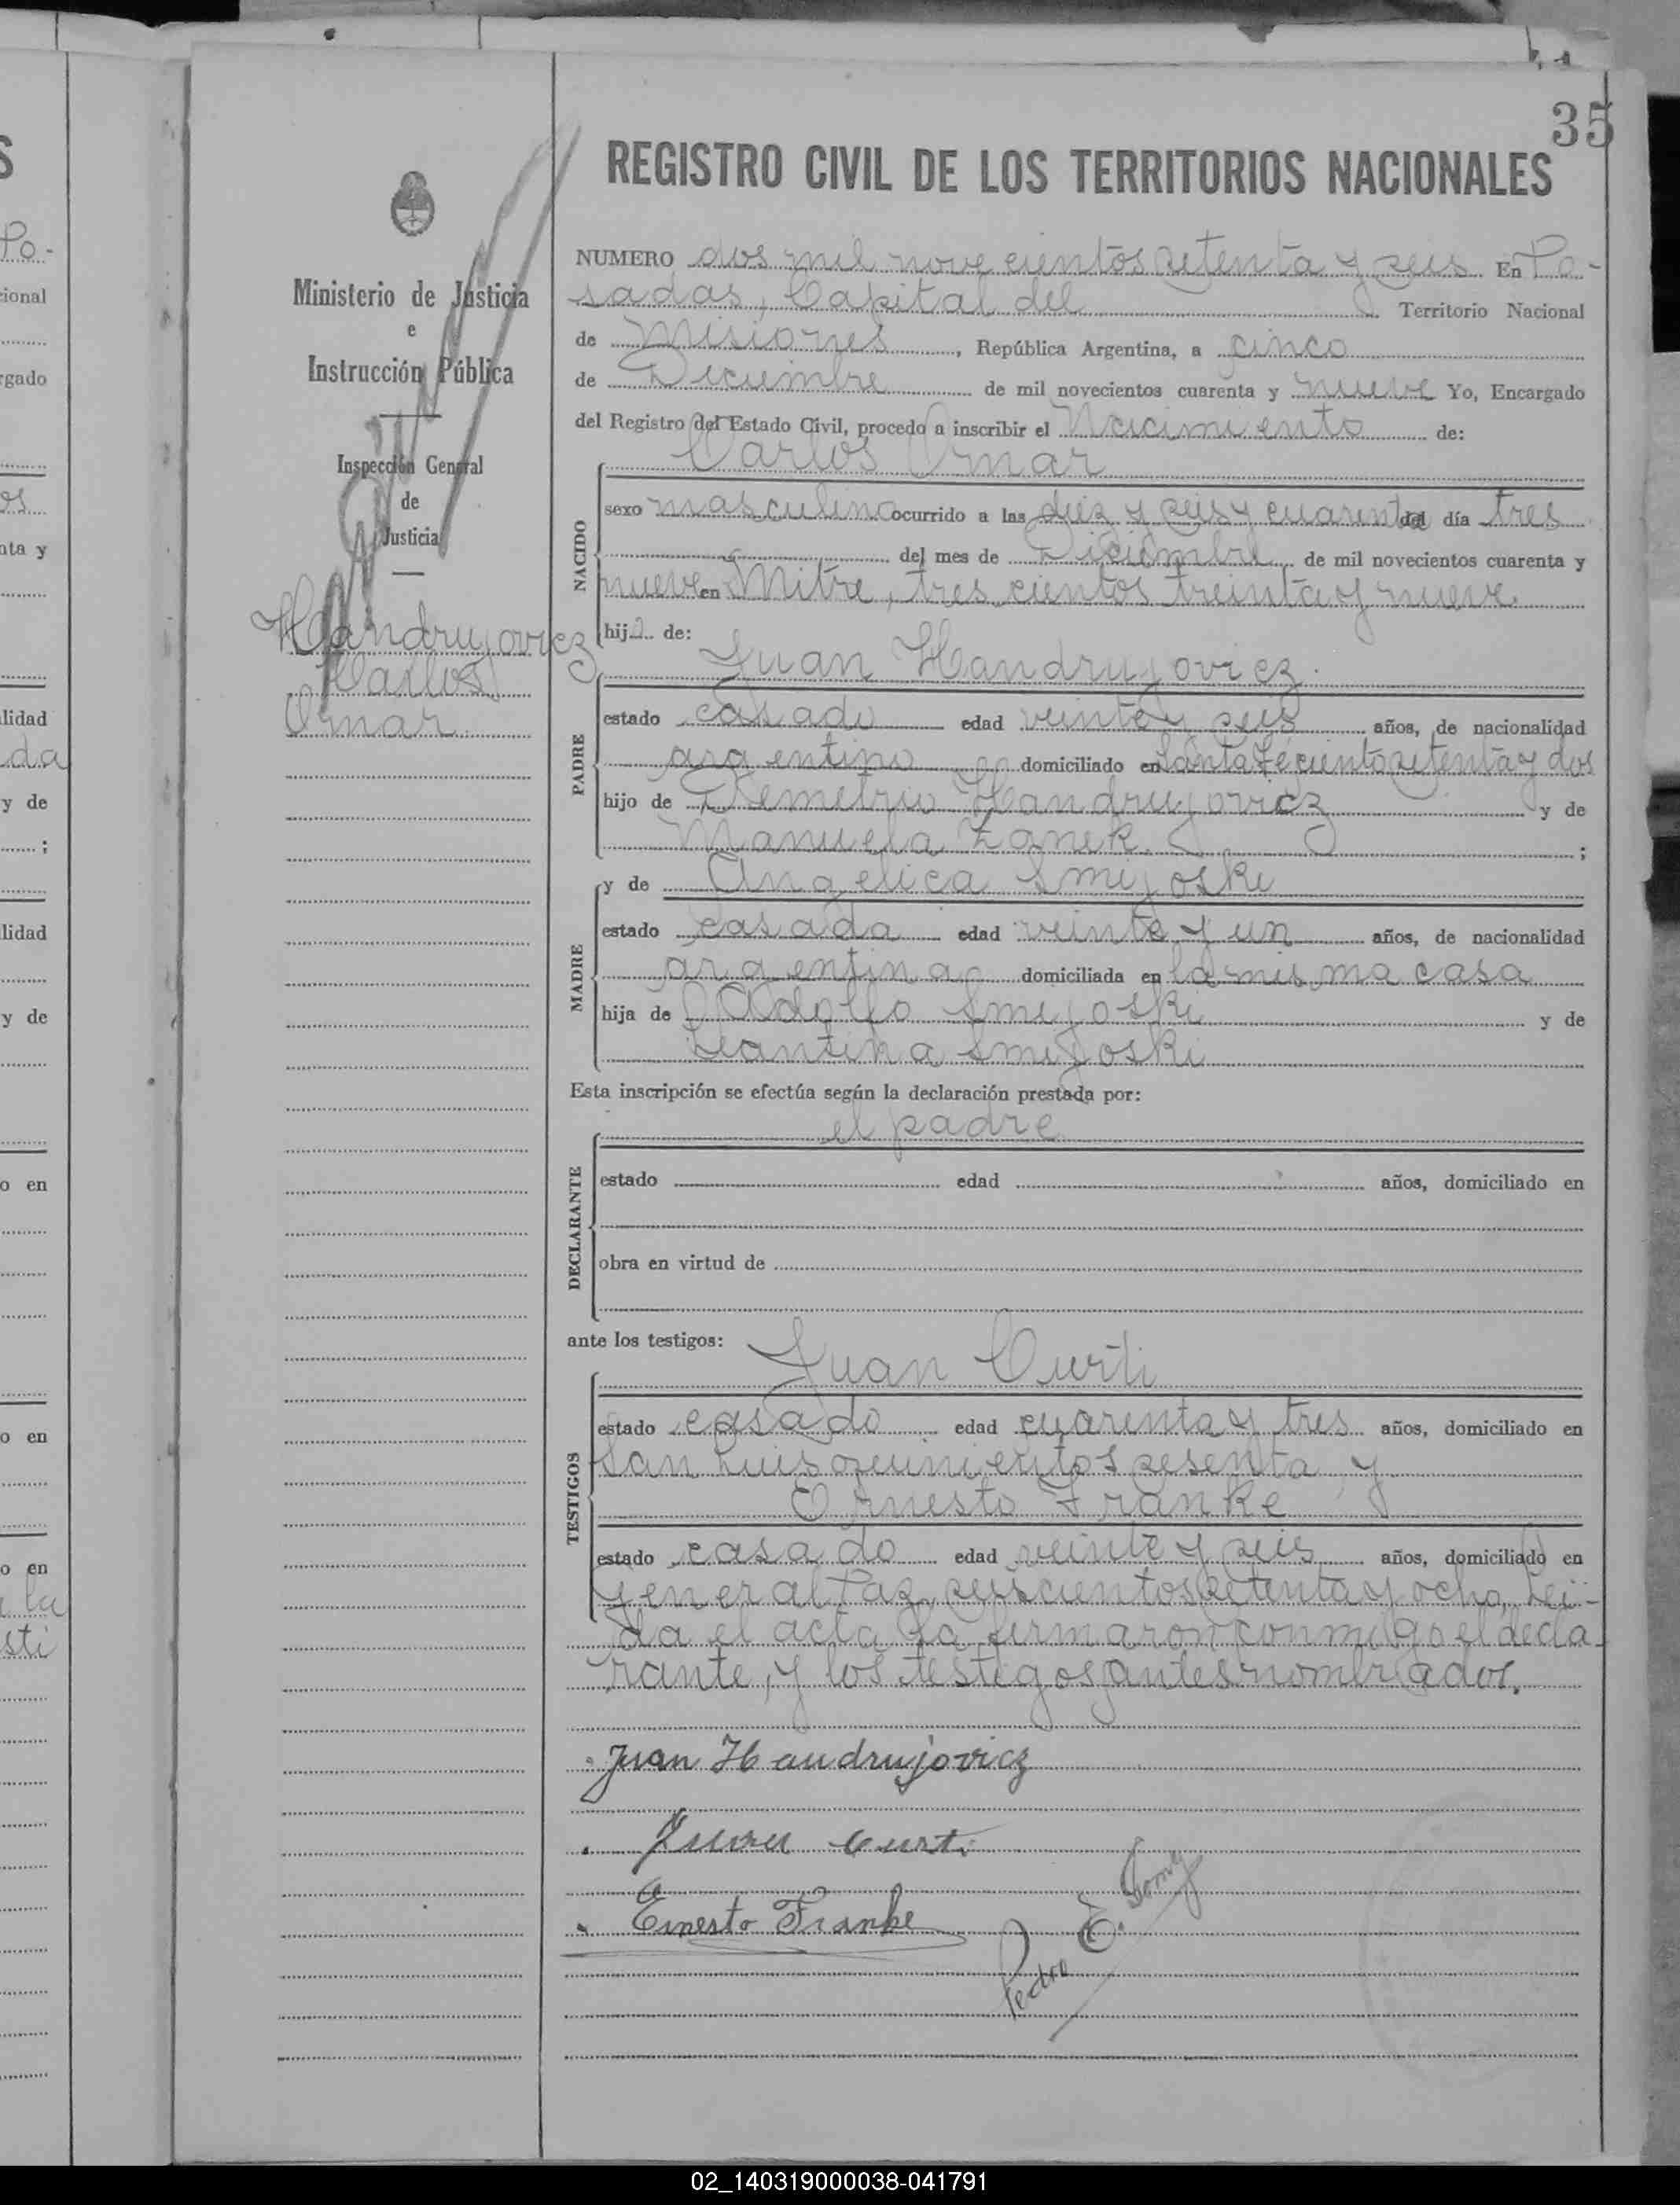 35
REGISTRO CIVIL DE LOS TERRITORIOS NACIONALES
Ministerio de Justicia
e
Instrucción Pública
Inspección General
de
Justicia
Handrujovicz
Carlos
Omar
NUMERO dos mil novecientos setenta y seis En Po-
sadas, Capital del Territorio Nacional
de Misiones, República Argentina, a cinco
de Diciembre de mil novecientos cuarenta y nueve Yo, Encargado
del Registro del Estado Civil, procedo a inscribir el Nacimiento de:
Carlos Omar
NACIDO
sexo masculino ocurrido a las diez y seis y cuarenta del día tres
del mes de Diciembre de mil novecientos cuarenta y
nueve en Mitre, trescientos treinta y nueve
hijo de:
Juan Handrujovicz
PADRE
estado casado edad veinte y seis años, de nacionalidad
argentino domiciliado en Santa Fe ciento setenta y dos
hijo de Demetrio Handrujovicz y de
Manuela Zanek ;
MADRE
y de Angelica Smijoski
estado casada edad veinte y un años, de nacionalidad
argentina domiciliada en la misma casa
hija de Adolfo Smijoski y de
Smijoski
Esta inscripción se efectúa según la declaración prestada por:
el padre
DECLARANTE
estado edad años, domiciliado en
obra en virtud de
ante los testigos:
Juan Curti
TESTIGOS
estado casado edad cuarenta y tres años, domiciliado en
San Luis quinientos sesenta y
Ernesto Franke
estado casado edad veinte y seis años, domiciliado en
General Paz seiscientos setenta y ocho, Lei-
da el acta la firmaron conmigo el decla
rante, y los testigos antes nombrados.
Juan Handrujovicz
Juan Curti
Ernesto Franke
Pedro E.
02_140319000038-041791